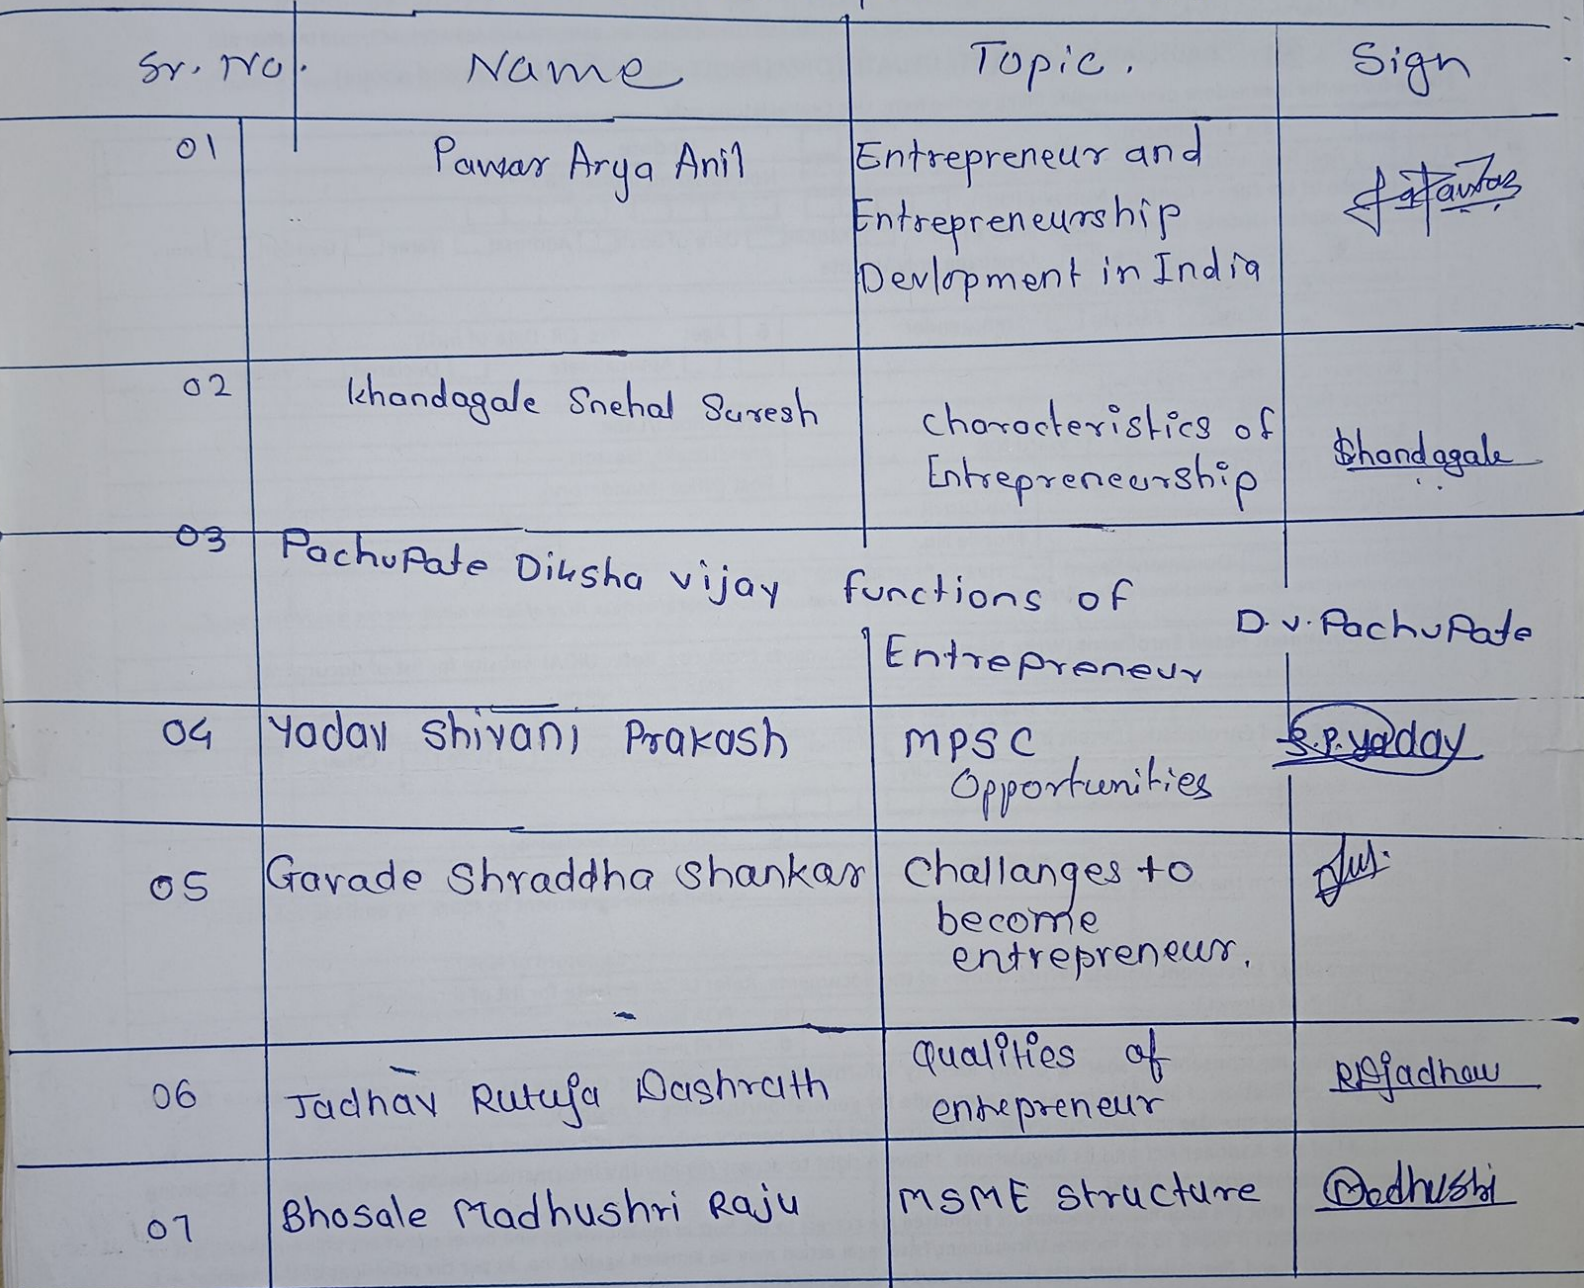 Sr. No. Name Topic. Sign
01 Pawar Arya Anil Entrepreneur and
Entrepreneurship
Devlopment in India
02 Khandagale Snehal Suresh Characteristics of Khandagale
Entrepreneurship
03 PachuPate Diksha vijay functions of D.V. PachuPate
Entrepreneur
04 Yadav Shivani Prakash MPSC S.P. Yadav
Opportunities
05 Gavade Shraddha Shankar Challanges to
become
entrepreneur.
06 Jadhav Rutuja Dashrath Qualities of RDJadhav
entrepreneur
07 Bhosale Madhushri Raju MSME Structure Madhushri